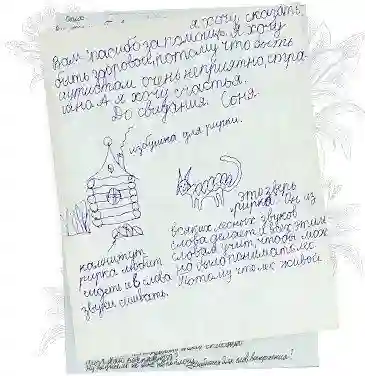 я хочу сказать
Вам "пасибо за помощь. Я хочу
быть здоровой, потому что быть
аутистом очень неприятно, стра
шно. А я хочу счастья.
До свидания. Соня.
избушка для рирки.
это зверь
рирка. Он из
всяких лесных звуков
слова делает и всех этим
словам учит, чтобы мож
но было понимать лес
Потому что лес живой
камнитут
рирка любит
сидеть и в слова
звуки сшивать.